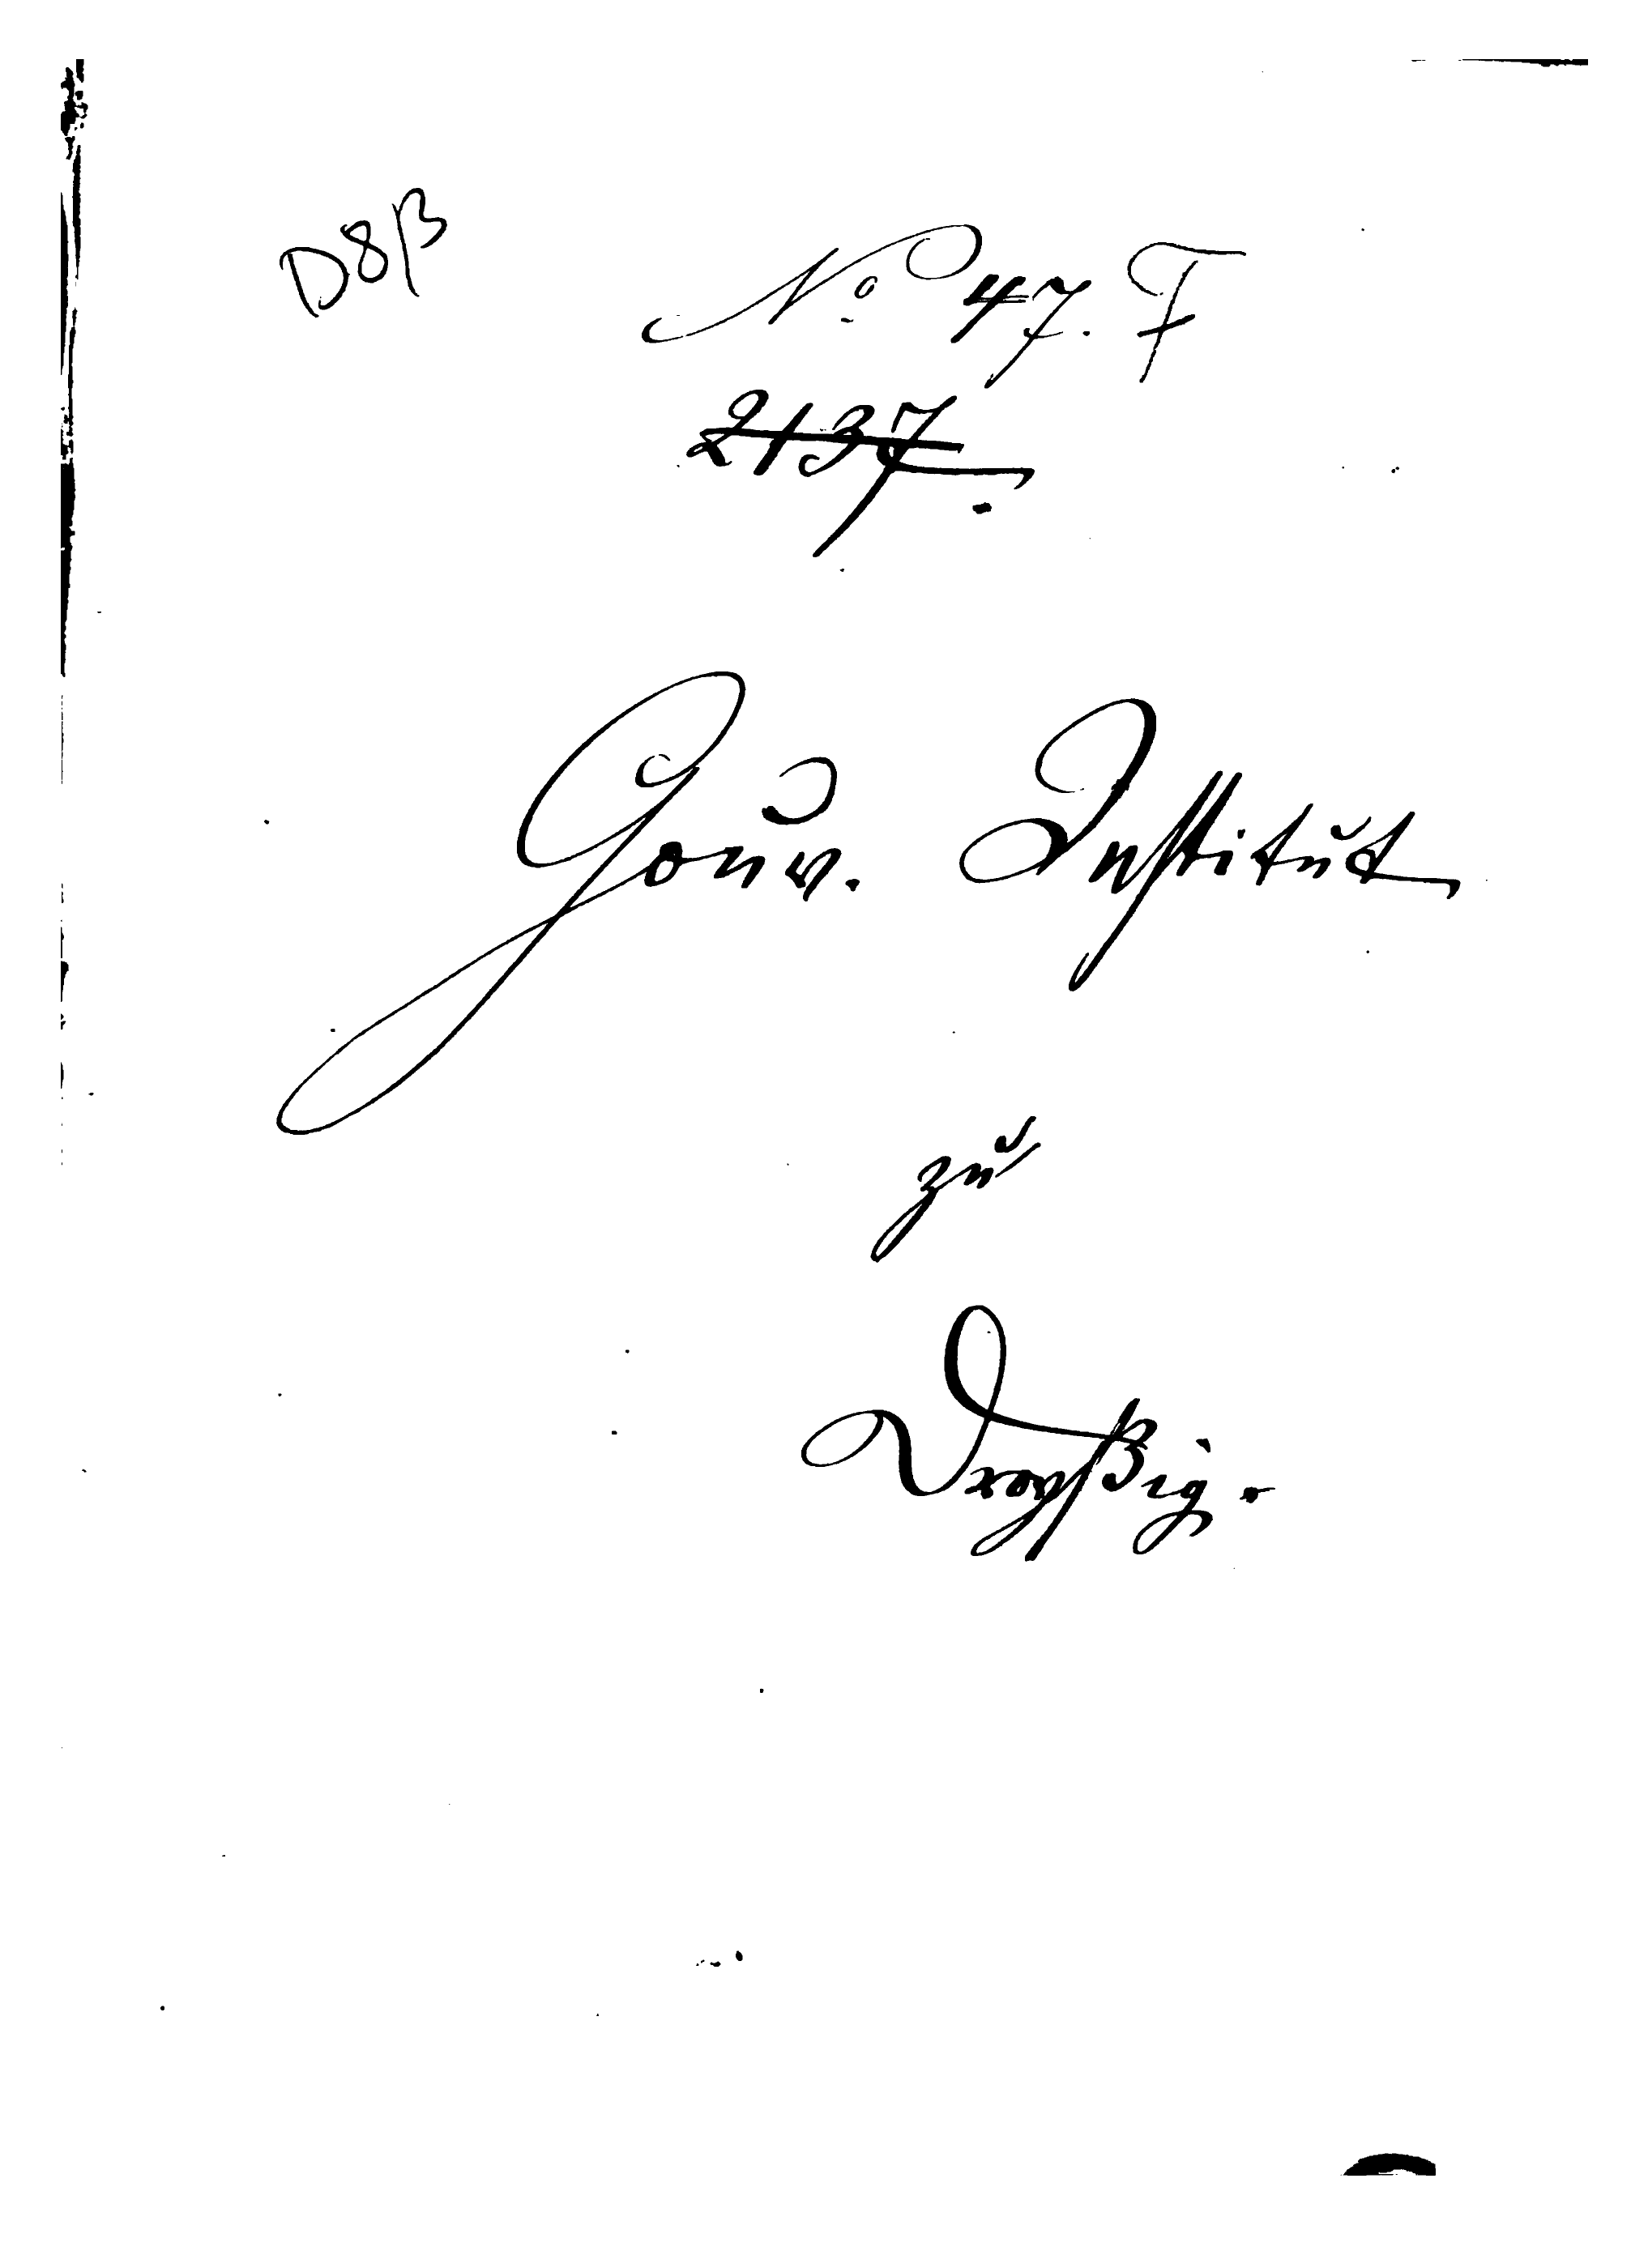 D8β
No 47. F
2137.
Gouv. Institut
zu
Droyßig.